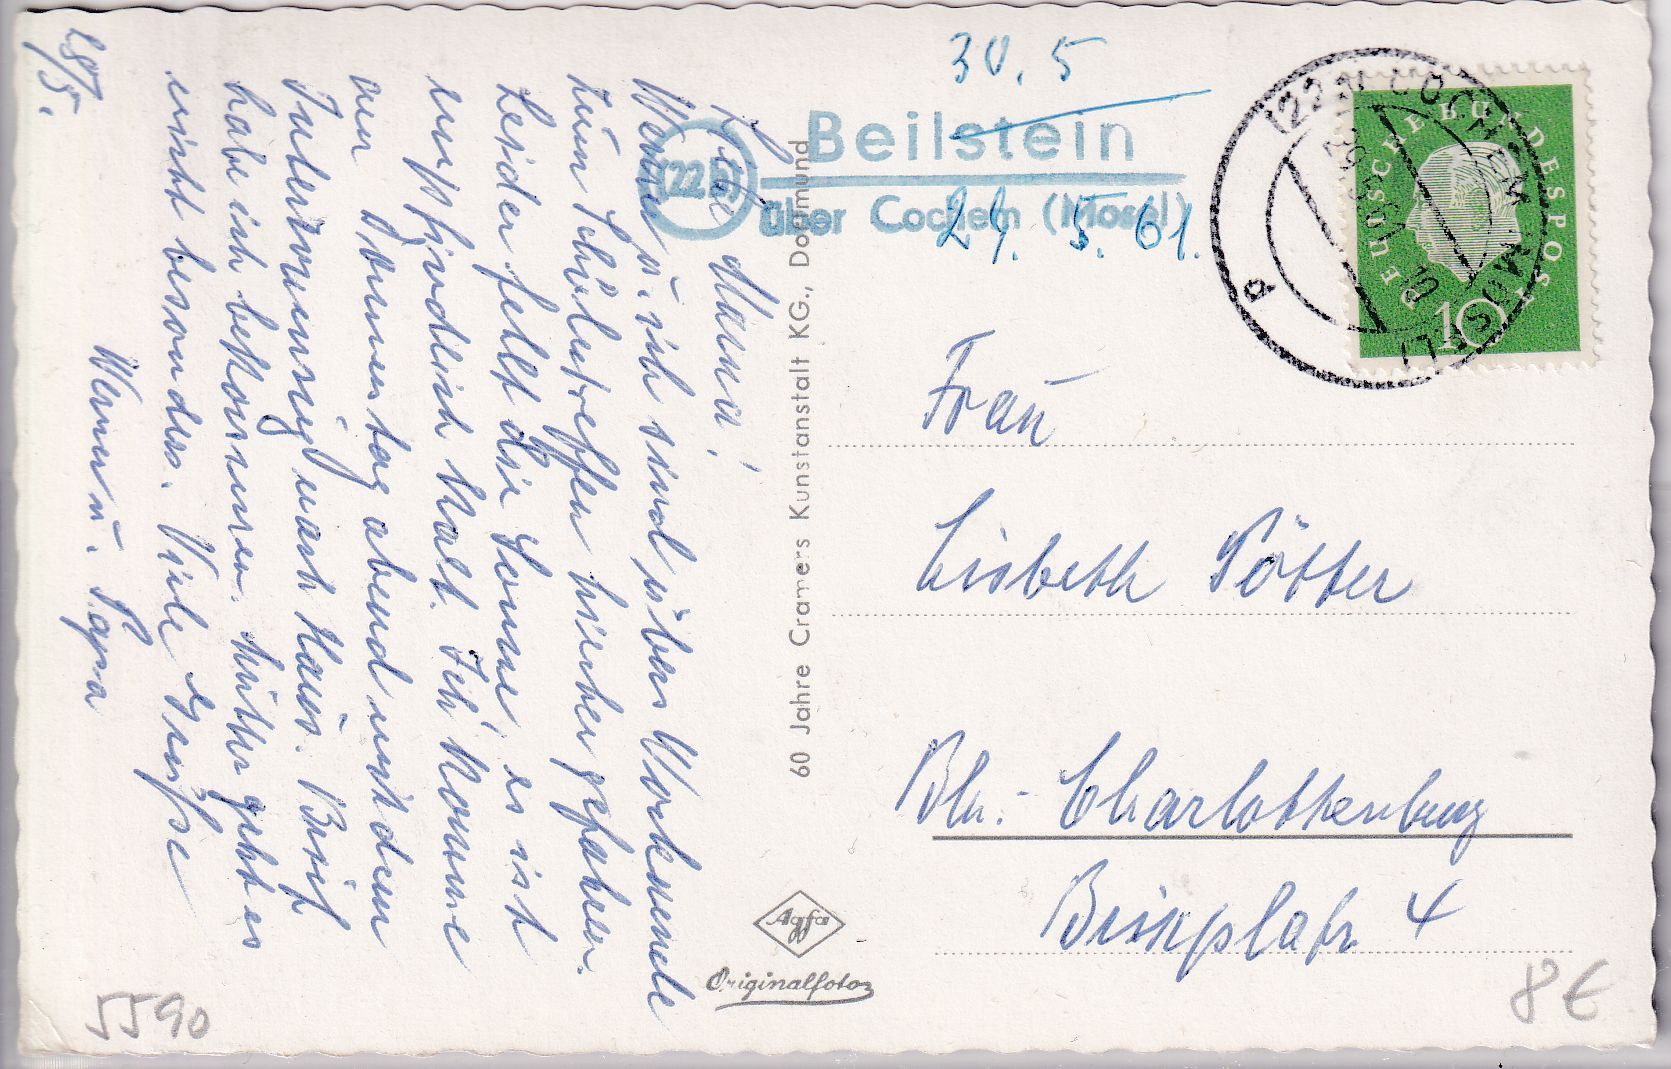 28/5.
Liebe Mama!
Werner u. ich sind übers Wochenende
zum Schülertreffen hierher gefahren.
Leider fehlt die Sonne, es ist
empfindlich kalt. Ich komme
am Donnerstag abend mit dem
Interzonenzug nach Haus. Brief
habe ich bekommen. Mutter geht es
nicht besonders. Viele Grüsse
Werner u.
(22b)
Beilstein
über Cochem (Mosel)
30.5
29. 5. 61.
(22b) COCHEM (MOSEL)
DEUTSCHE BUNDESPOST
10
Frau
Lisbeth Pötter
Bln.- Charlottenburg
4
60 Jahre Cramers Kunstanstalt KG., Dortmund
Agfa
Originalfoto
5590
8€